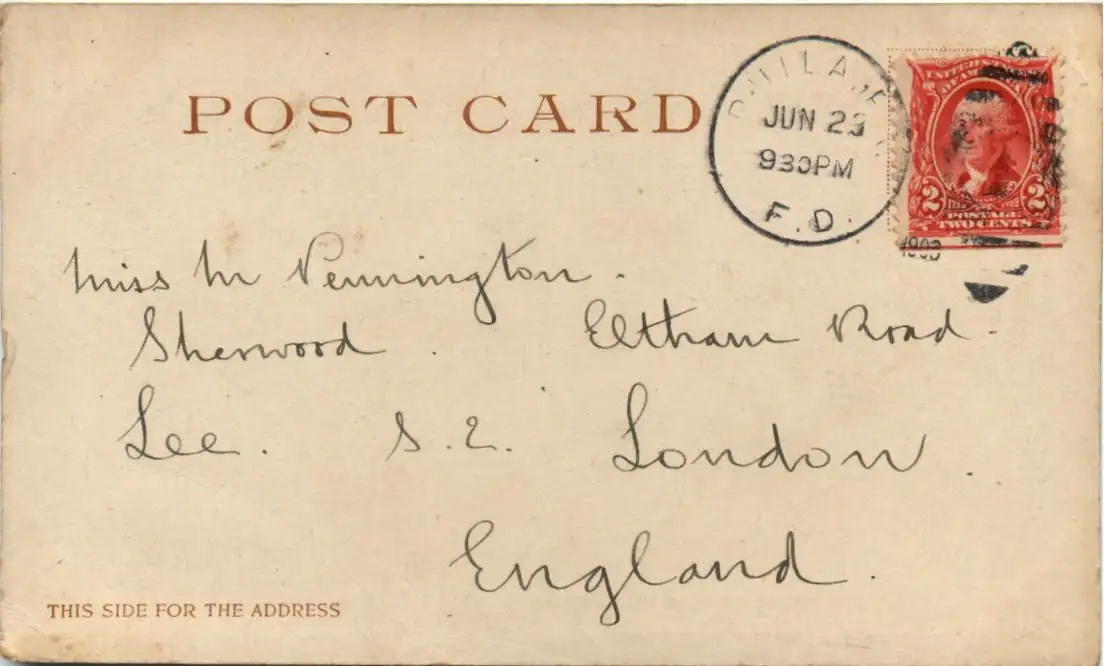 POST CARD
JUN 23
930PM
F.D.
1903
UNITED STATES
OF AMERICA
2 2
POSTAGE
TWO CENTS
Miss M Pennington.
Sherwood. Eltham Road.
Lee. S.E. London.
England.
THIS SIDE FOR THE ADDRESS